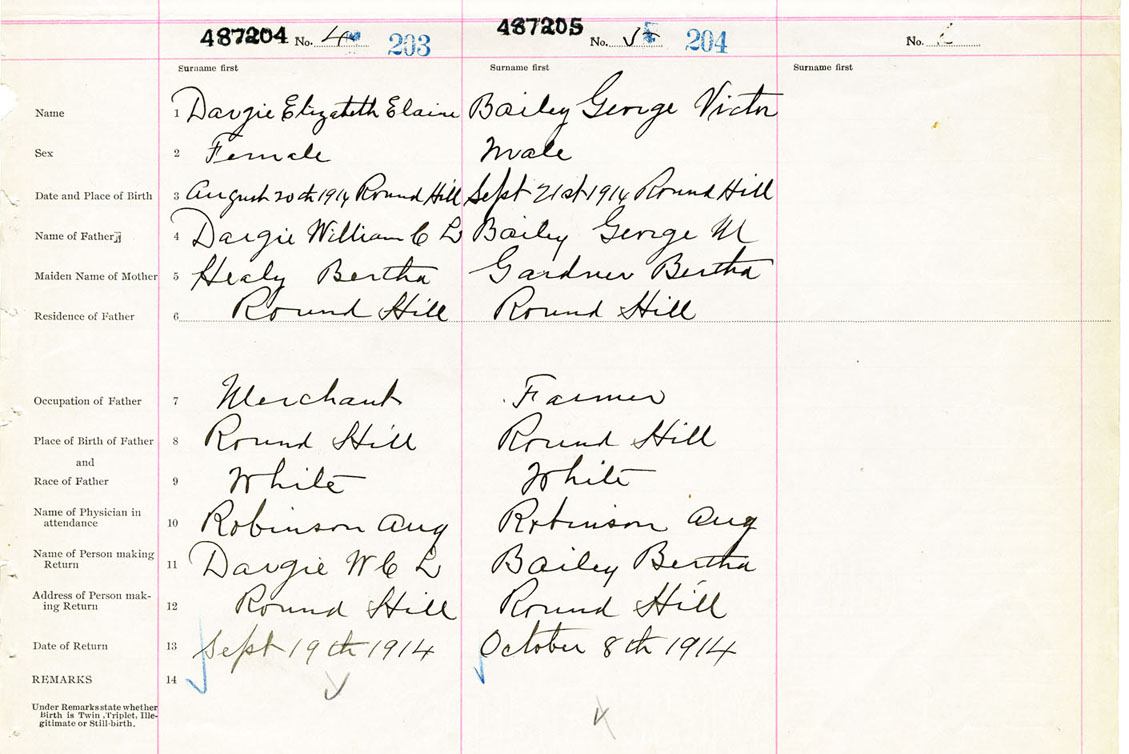 487204 No. 4 203 487205 No. 5 204 No.
Surname first Surname first Surname first
Name 1 Dargie Elizabeth Elaine Bailey George Victor
Sex 2 Female Male
Date and Place of Birth 3 August 20th 1914 Round Hill Sept 21st 1914 Round Hill
Name of Father 4 Dargie William C L Bailey George M
Maiden Name of Mother 5 Healy Bertha Gardner Bertha
Residence of Father 6 Round Hill Round Hill
Occupation of Father 7 Merchant Farmer
Place of Birth of Father 8 Round Hill Round Hill
and
Race of Father 9 White White
Name of Physician in
attendance 10 Robinson Aug Robinson Aug
Name of Person making
Return 11 Dargie W C L Bailey Bertha
Address of Person mak-
ing Return 12 Round Hill Round Hill
Date of Return 13 Sept 19th 1914 October 8th 1914
REMARKS 14
Under Remarks state whether
Birth is Twin, Triplet, Ille-
gitimate or Still-birth.